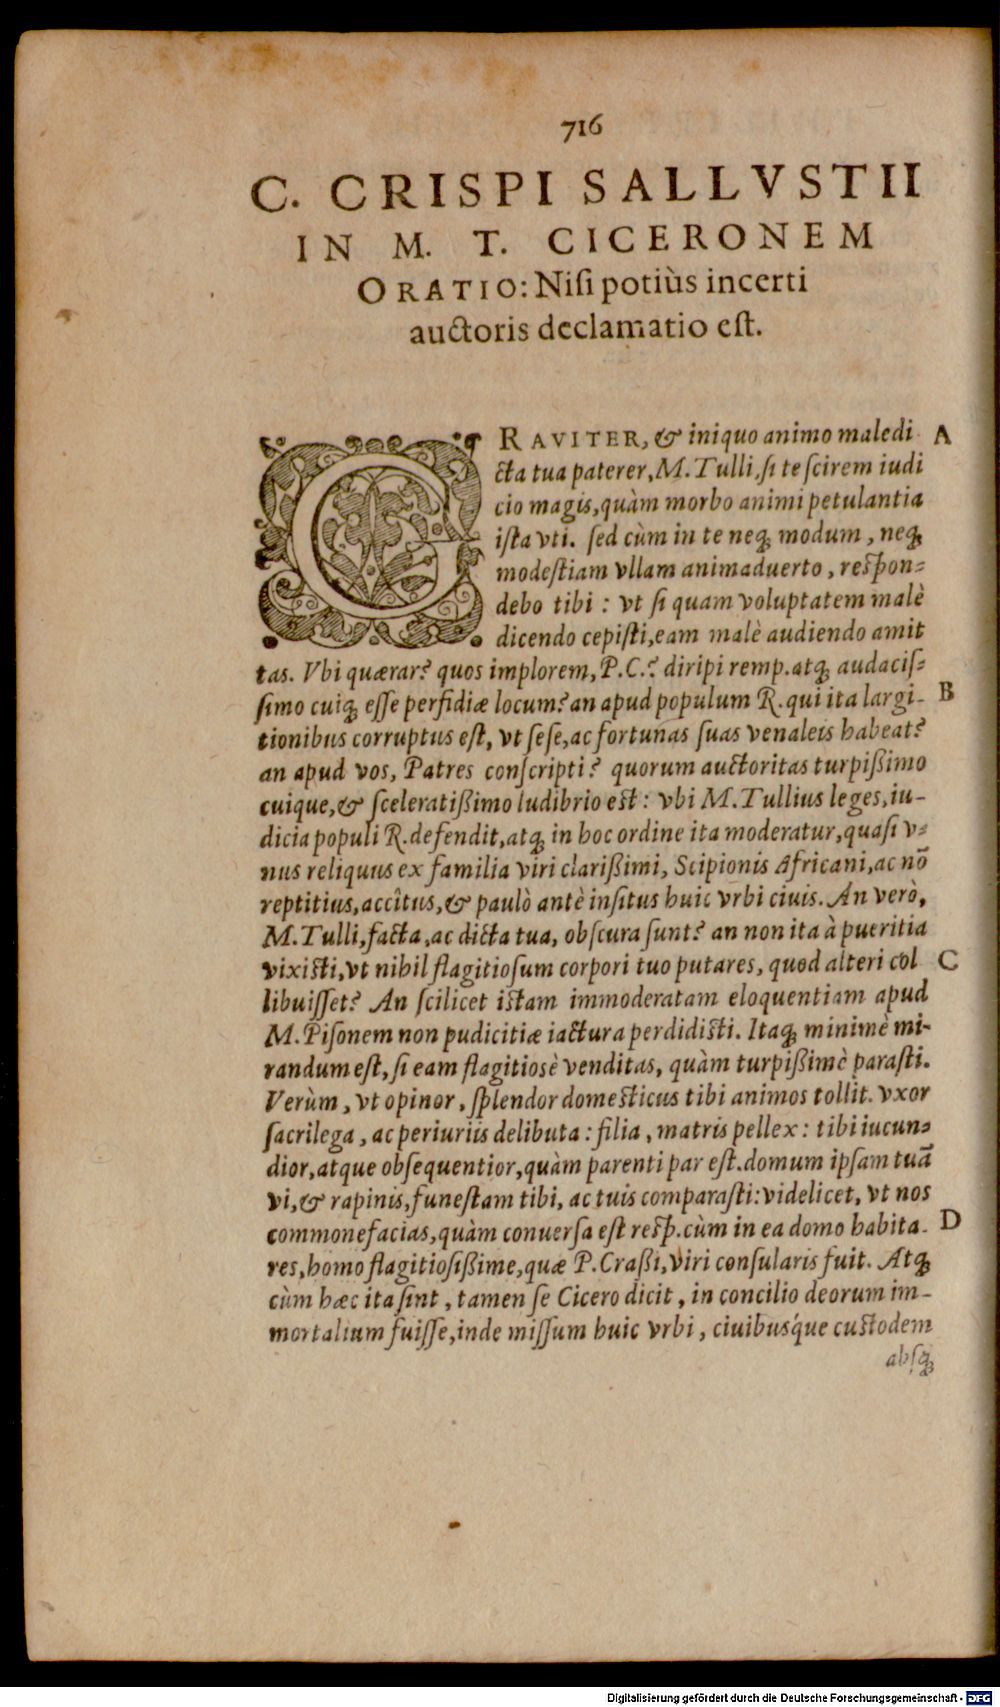 716
C. CRISPI SALLVSTII
IN M. T. CICERONEM
ORATIO: Nisi potiùs incerti
auctoris declamatio est.
GRAVITER, & iniquo animo maledi A
cta tua paterer, M. Tulli, si te scirem iudi
cio magis, quàm morbo animi petulantia
ista vti. sed cùm in te neq; modum, neq;
modestiam vllam animaduerto, respon=
debo tibi: vt si quam voluptatem malè
dicendo cepisti, eam malè audiendo amit
tas. Vbi quærar? quos implorem, P. C.? diripi remp. atq; audacis=
simo cuiq; esse perfidiæ locum? an apud populum R. qui ita largi- B
tionibus corruptus est, vt sese, ac fortunas suas venaleis habeat?
an apud vos, Patres conscripti? quorum auctoritas turpißimo
cuique, & sceleratißimo ludibrio est: vbi M. Tullius leges, iu-
dicia populi R. defendit, atq; in hoc ordine ita moderatur, quasi v=
nus reliquus ex familia viri clarißimi, Scipionis Africani, ac nō
reptitius, accîtus, & paulò antè insitus huic vrbi ciuis. An verò,
M. Tulli, facta, ac dicta tua, obscura sunt? an non ita à pueritia
vixisti, vt nihil flagitiosum corpori tuo putares, quod alteri col C
libuisset? An scilicet istam immoderatam eloquentiam apud
M. Pisonem non pudicitiæ iactura perdidisti. Itaq; minimè mi-
randum est, si eam flagitiosè venditas, quàm turpißimè parasti.
Verùm, vt opinor, splendor domesticus tibi animos tollit. vxor
sacrilega, ac periuriis delibuta: filia, matris pellex: tibi iucun=
dior, atque obsequentior, quàm parenti par est. domum ipsam tuā
vi, & rapinis, funestam tibi, ac tuis comparasti: videlicet, vt nos
commonefacias, quàm conuersa est resp. cùm in ea domo habita- D
res, homo flagitiosißime, quæ P. Craßi, viri consularis fuit. Atq;
cùm hæc ita sint, tamen se Cicero dicit, in concilio deorum im-
mortalium fuisse, inde missum huic vrbi, ciuibusq́ue custodem
absq;
Digitalisierung gefördert durch die Deutsche Forschungsgemeinschaft - DFG